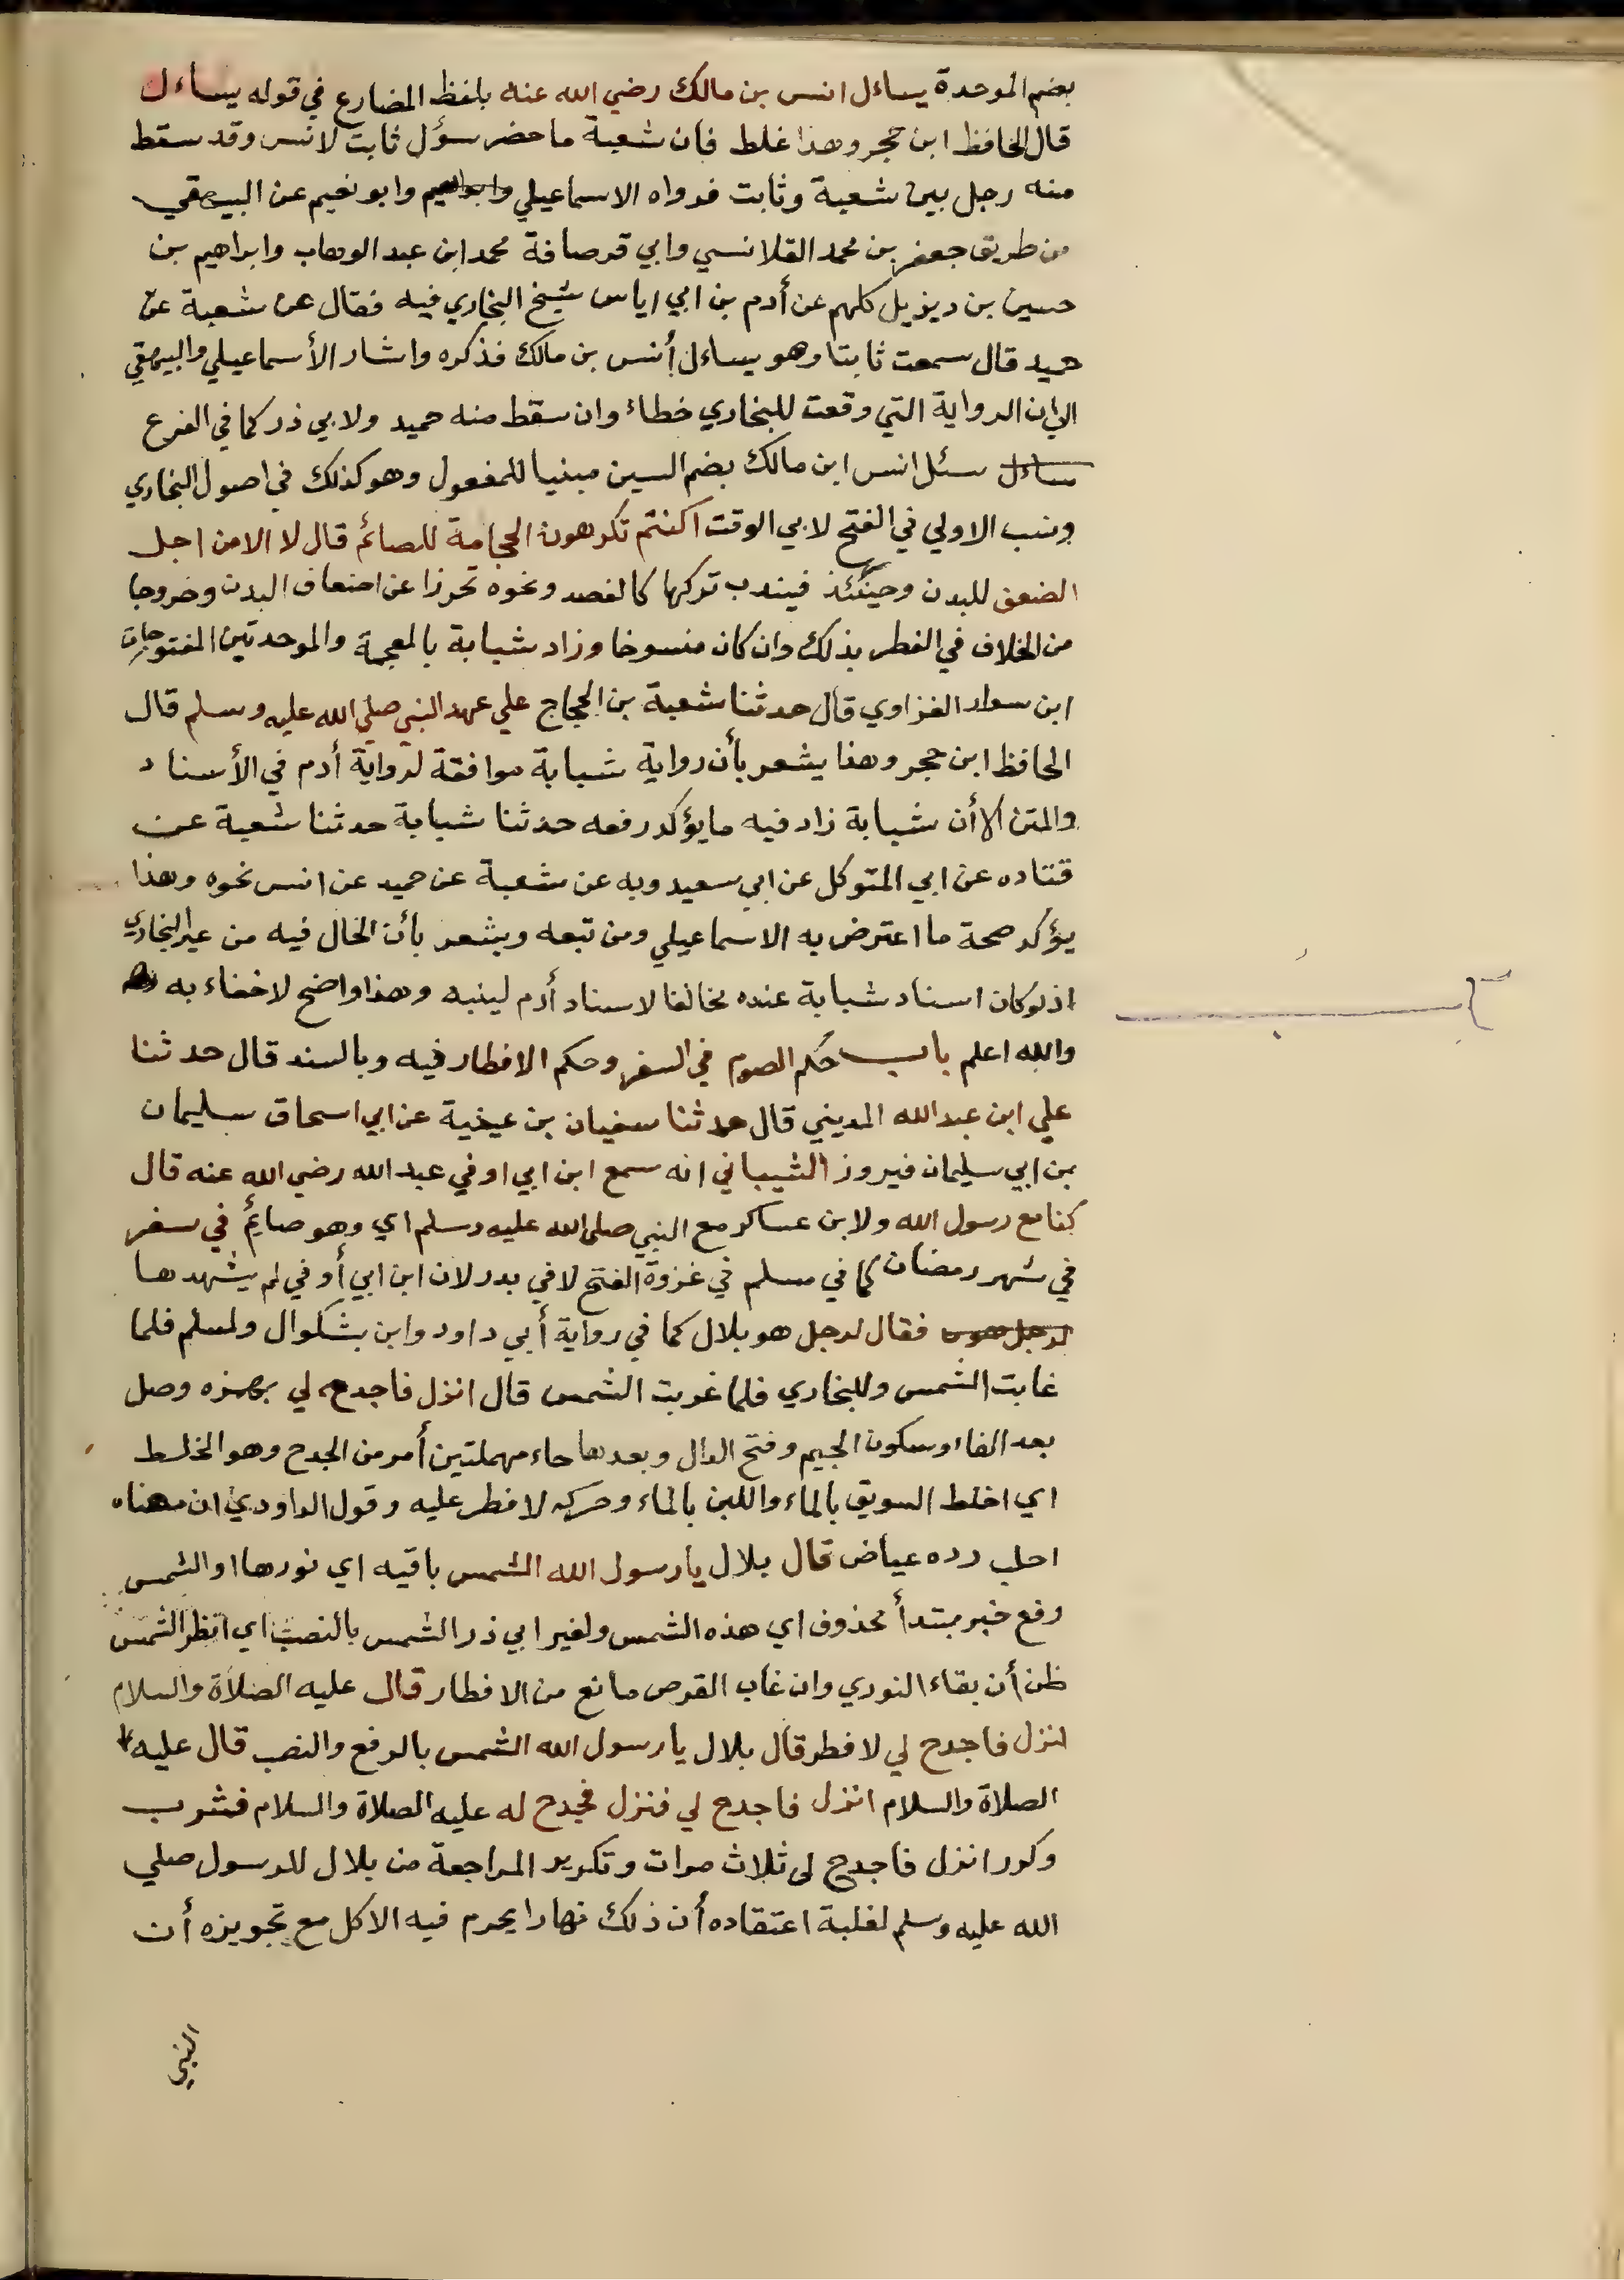 بضم الموحدة يساءل انس بن مالك رضي الله عنه بلفظ المضارع في قوله يساءل
قال الحافظ ابن حجر وهذا غلط فأن شعبة ما حضر سؤل ثابت لانس وقد سقط
منه رجل بين شعبة وثابت فرواه الاسماعيلي وابونعيم عن البيهقي
من طريق جعفر بن محمد القلانسي وابي قرصافة محمد ابن عبد الوهاب وابراهيم بن
حسين بن ديزيل كلهم عن أدم بن ابي اياس شيخ البخاري فيه فقال عن شعبة عن
حميد قال سمعت ثابتا وهو يساءل أنس بن مالك فذكره واشار الأسماعيلي والبيهقي
الي ان الرواية التي وقعت للبخاري خطاء وان سقط منه حميد ولابي ذر كما في الفرع
ساءل سئل انس ابن مالك بضم السين مبنيا للمفعول وهو كذلك في اصول البخاري
ونسب الاولي في الفتح لابي الوقت اكنتم تكرهون الحجامة للصائم قال لا الا من اجل
الضعف للبدن وحينئذ فيندب تركها كالفصد ونحوه تحرزا عن اضعاف البدن وخروجا
من الخلاف في الفطر بذلك وان كان منسوخا وزاد شبابة بالمعجمة والموحدتين المفتوحات
ابن سواد الفزاوي قال حدثنا شعبة بن الحجاج علي عهد النبي صلي الله عليه وسلم قال
الحافظ ابن حجر وهذا يشعر بأن رواية شبابة موافقة لرواية أدم في الأسناد
والمتن الا أن شبابة زاد فيه ما يؤكد رفعه حدثنا شبابة حدثنا شعبة عن
قتاده عن ابي المتوكل عن ابي سعيد وبه عن شعبة عن حميد عن انس نحوه وهذا
يؤكد صحة ما اعترض به الاسماعيلي ومن تبعه ويشعر بأن الخال فيه من غير البخاري
اذ لو كان اسناد شبابة عنده مخالفا لاسناد أدم لينبه وهذا واضح لا خفاء به
والله اعلم باب حكم الصوم في السفر وحكم الافطار فيه وبالسند قال حدثنا
علي ابن عبد الله المديني قال حدثنا سفيان بن عيينة عن ابي اسحاق سليمان
بن ابي سليمان فيروز الشيباني انه سمع ابن ابي اوفي عبد الله رضي الله عنه قال
كنا مع رسول الله ولابن عساكر مع النبي صلى الله عليه وسلم اي وهو صايم في سفر
في شهر رمضان كما في مسلم في غزوة الفتح لا في بدر لان ابن ابي أوفي لم يشهدها
لرجل فقال لرجل هو بلال كما في رواية أبي داود وابن بشكوال ولمسلم فلما
غابت الشمس وللبخاري فلما غربت الشمس قال انزل فاجدح لي بهمزه وصل
بعد الفاء وسكون الجيم وفتح الدال وبعدها حاء مهملتين أمر من الجدح وهو الخلط
اي اخلط السويق بالماء واللبن بالماء وحركه لا فطر عليه وقول الداودي ان معناه
احلب رده عياض قال بلال يارسول الله الشمس باقيه اي نورها او الشمس
رفع خبر مبتدأ محذوف اي هذه الشمس ولغير ابي ذر الشمس بالنصب اي انظر الشمس
ظن أن بقاء النوري وان غاب القرص مانع من الافطار قال عليه الصلاة والسلام
انزل فاجدح لي لا فطر قال بلال يا رسول الله الشمس بالرفع والنصب قال عليه
الصلاة والسلام انزل فاجدح لي فنزل فجدح له عليه الصلاة والسلام فشرب
وكرر انزل فاجدح لي ثلاث مرات وتكرير المراجعة من بلال للرسول صلي
الله عليه وسلم لغلبة اعتقاده أن ذلك نهارا يحرم فيه الاكل مع تجويزه أن
النبي